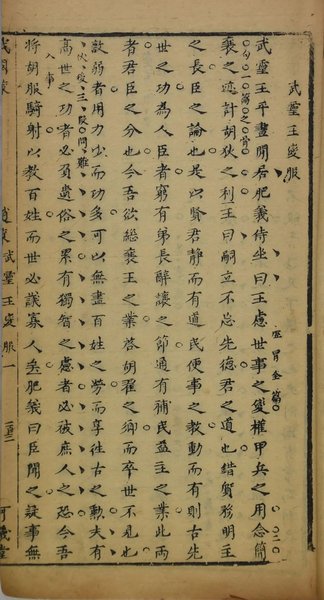 武靈王變服
全篇
武靈王平晝閒居肥義侍坐曰王慮世事之變權甲兵之用念簡
一篇之骨
襄之迹計胡狄之利王曰嗣立不忘先德君之道也錯質務明主
之長臣之論也是以賢君靜而有道民便事之教動而有則古先
世之功為人臣者窮有弟長辭讓之節通有補民益主之業此兩
者君臣之分也今吾欲繼襄王之業啓胡翟之鄉而卒世不見也
敵弱者用力少而功多可以無盡百姓之勞而享往古之勳夫有
伏後三段問難
高世之功者必負遺俗之累有獨智之慮者必被庶人之恐今吾
入事
將胡服騎射以教百姓而世必議寡人矣肥義曰臣聞之疑事無
武靈王變服 一